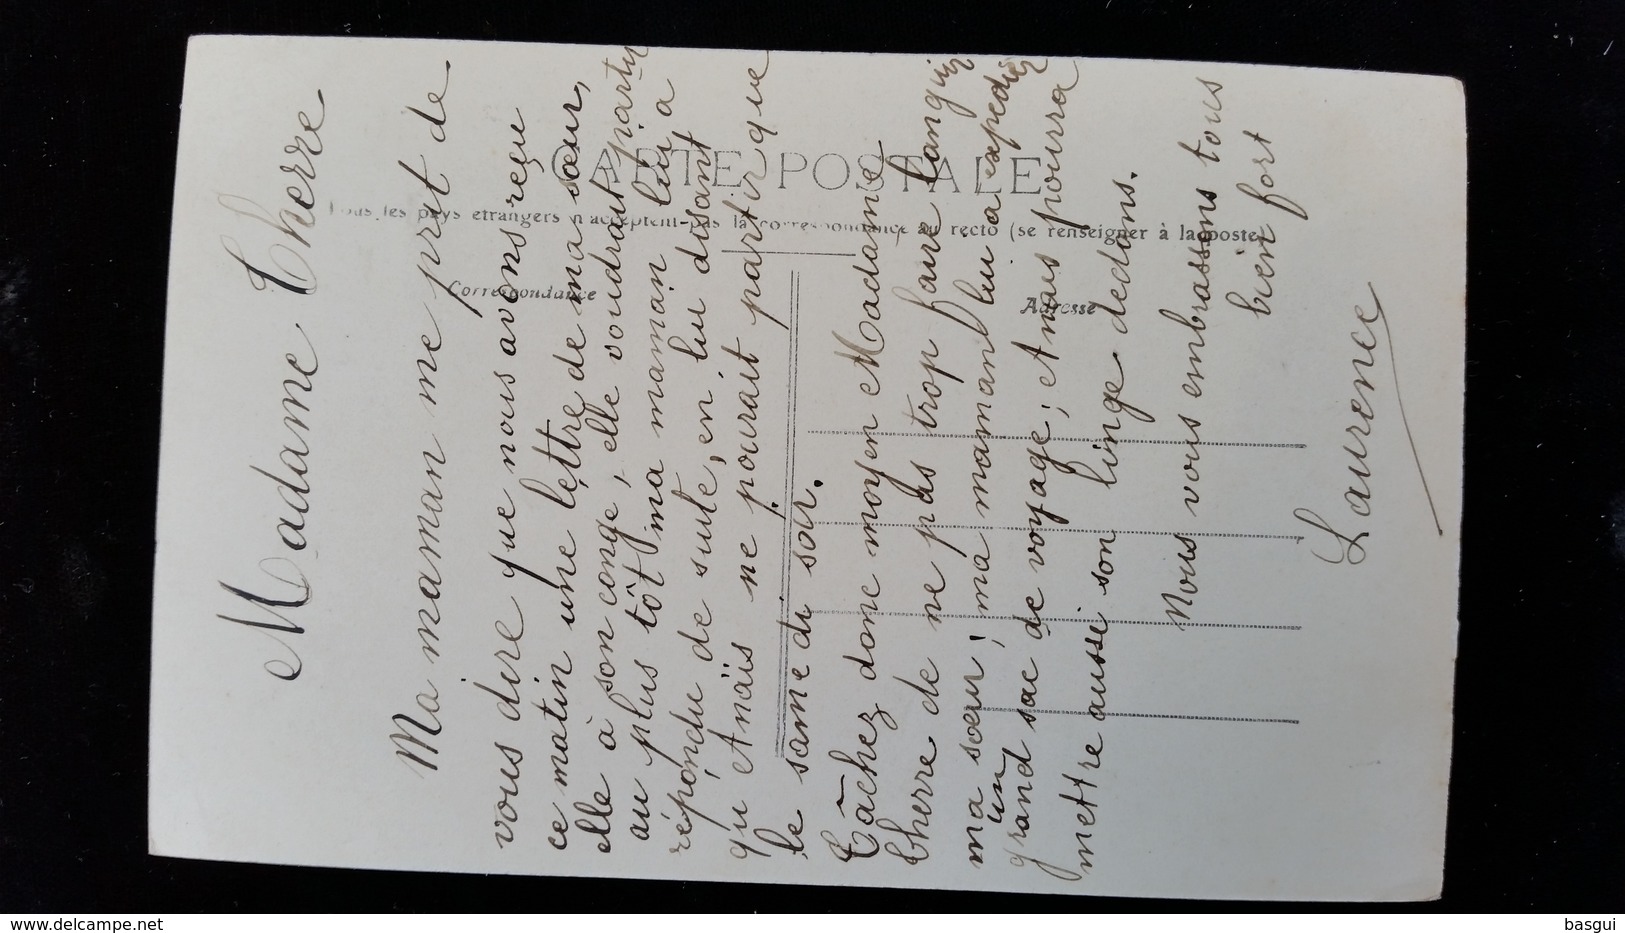 Madame Therre
Ma maman me prit de
vous dire que nous avons reçu
ce matin une lettre de ma sœur,
elle à son conge, elle voudrait partir
au plus tôt ma maman lui a
répondu de suite, en lui disant
qu'Anaïs ne pourait partir que
le samedi soir.
Tâchez donc moyen Madame
Therre de ne pas trop faire languir
ma sœur; ma maman lui a expedier
un
grand sac de voyage; Anaïs pourra
mettre aussi son linge dedans.
Nous vous embrassons tous
bien fort
Laurence
CARTE POSTALE
Tous les pays étrangers n'acceptent pas la correspondance au recto (se renseigner à la poste)
Correspondance
Adresse
www.delcampe.net
basgui